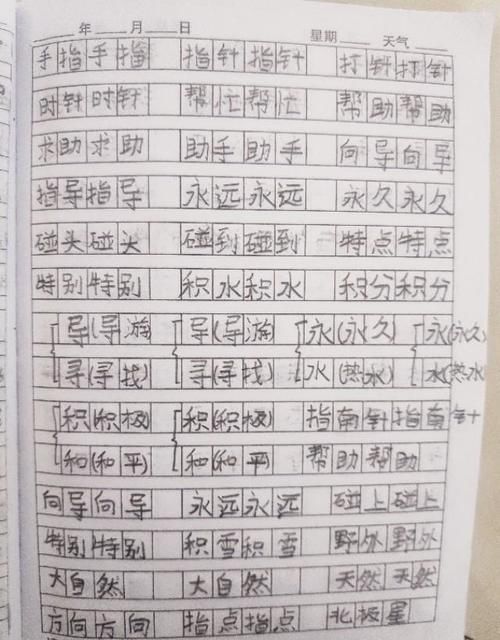 年 月 日 星期 天气
手指手指 指针指针 打针打针
时针时针 帮忙帮忙 帮助帮助
求助求助 助手助手 向导向导
指导指导 永远永远 永久永久
碰头碰头 碰到碰到 特点特点
特别特别 积水积水 积分积分
导(导游) 导(导游) 永(永久) 永(永久)
寻(寻找) 寻(寻找) 水(热水) 水(热水)
积(积极) 积(积极) 指南针指南针
和(和平) 和(和平) 帮助帮助
向导向导 永远永远 碰上碰上
特别特别 积雪积雪 野外野外
大自然 大自然 天然天然
方向方向 指点指点 北极星